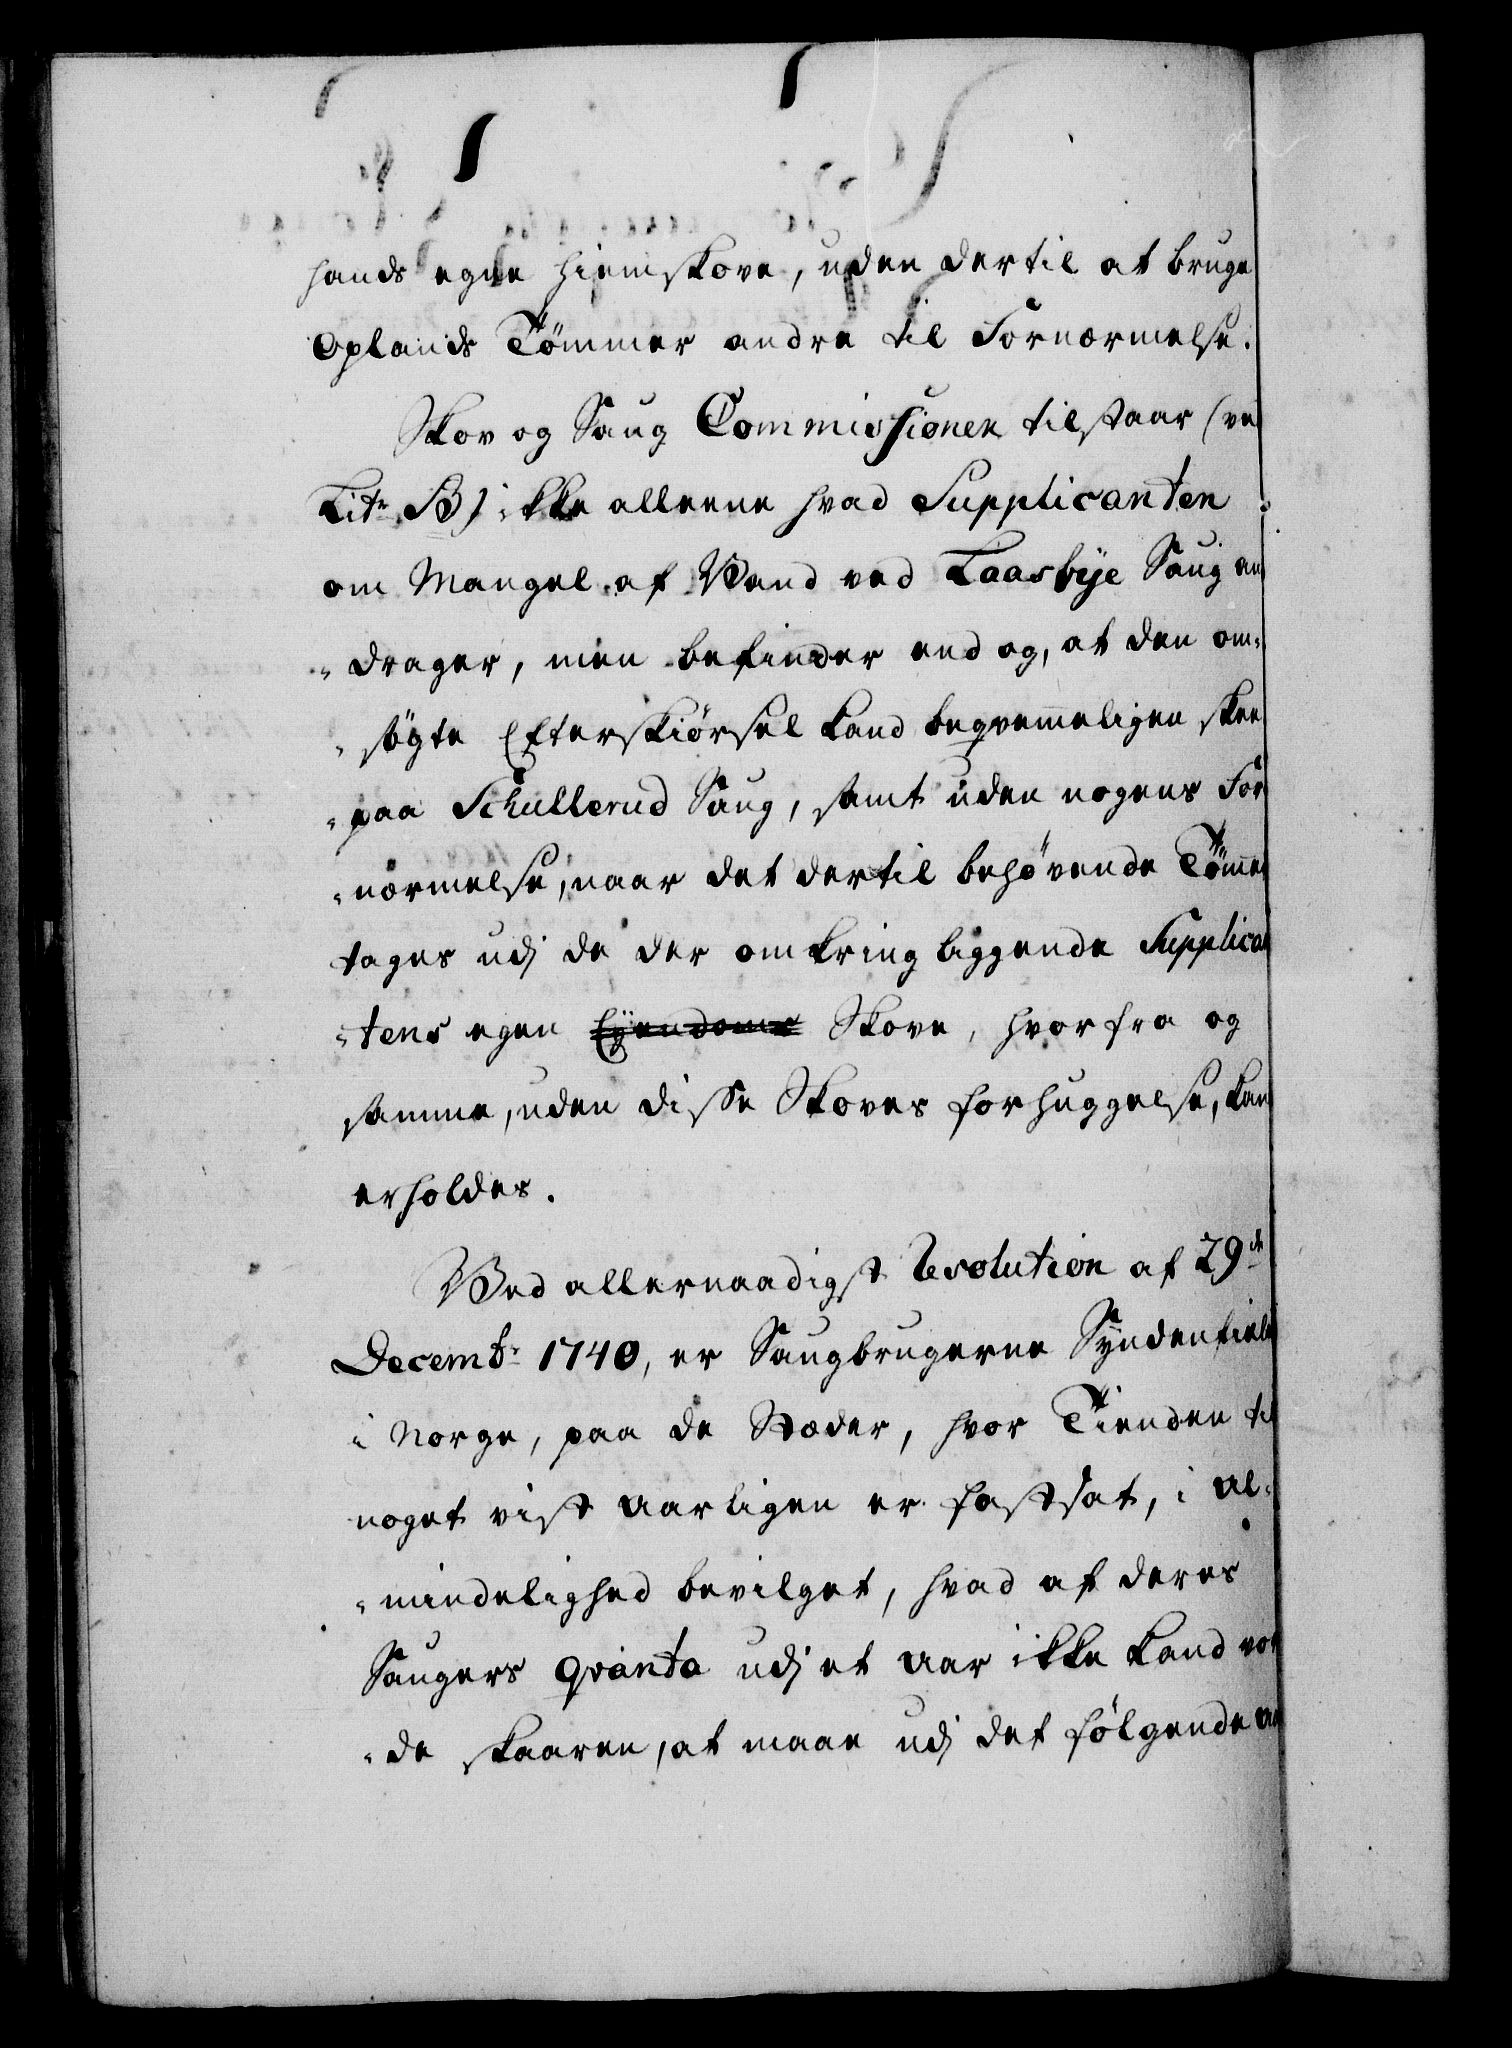 hands egne hiemskove, uden dertil at bruge
Oplands Tömmer andre til Fornærmelse.
Skov og Saug Commissionen tilstaar (ve
Litr B) ikke alleene hvad Supplicanten
om Mangel af Vand ved Laasbye Saug an
"drager, men befinder end og, at den om-
"søgte Efterskiørsel kand beqvemmeligen skee
"paa Schullerud Saug, samt uden nogens For
"nærmelse, naar det dertil behøvende Tømmer
tages udj de der omkring liggende Supplican
"tens egen Eyendoms Skove, hvorfra og
samme, uden disse Skoves forhuggelse, kan
erholdes.
Ved allernaadigst Resolution af 29de
Decembr 1740, er Saugbrugerne Syndenfields
i Norge, paa de Stæder, hvor Tienden til
noget vist Aarligen er fastsat, i Al-
"mindelighed bevilget, hvad af deres
Saugers qvanta udj et Aar ikke kand vor
"de skaaren, at maae udj det følgende Aa